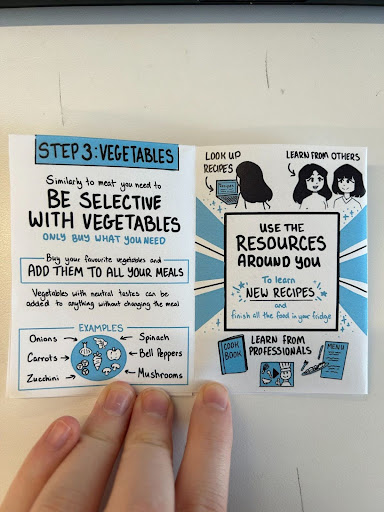 STEP 3: VEGETABLES
Similarly to meat you need to
BE SELECTIVE
WITH VEGETABLES
ONLY BUY WHAT YOU NEED
Buy your favourite vegetables and
ADD THEM TO ALL YOUR MEALS
Vegetables with neutral tastes can be
added to anything without changing the meal
EXAMPLES
Onions
Carrots
Zucchini
Spinach
Bell Peppers
Mushrooms
LOOK UP
RECIPES
Recipes
LEARN FROM OTHERS
USE THE
RESOURCES
AROUND YOU
To learn
NEW RECIPES
and
finish all the food in your fridge
LEARN FROM
PROFESSIONALS
COOK
BOOK
MENU